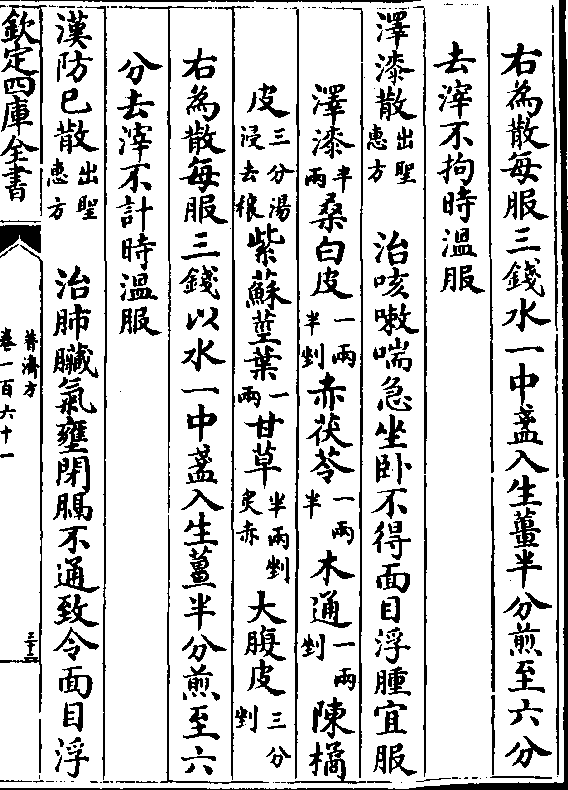 右為散每服三錢水一中盞入生薑半分煎至六分
去滓不拘時溫服
澤漆散出聖惠方　治咳嗽喘急坐卧不得面目浮腫宜服
澤漆半兩桑白皮一兩半剉赤茯苓一兩半木通一兩剉陳橘
皮三分湯浸去穰紫蘇莖葉一兩甘草半兩剉炙赤大腹皮三分剉
右為散每服三錢以水一中盞入生薑半分煎至六
分去滓不計時溫服
漢防已散出聖惠方　治肺臟氣壅閉膈不通致令面目浮
欽定四庫全書
普濟方
卷一百六十一
三十二